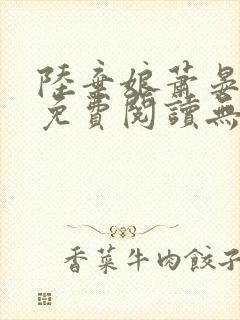 陸棄娘蕭晏
免費閱讀無
香菜牛肉餃子